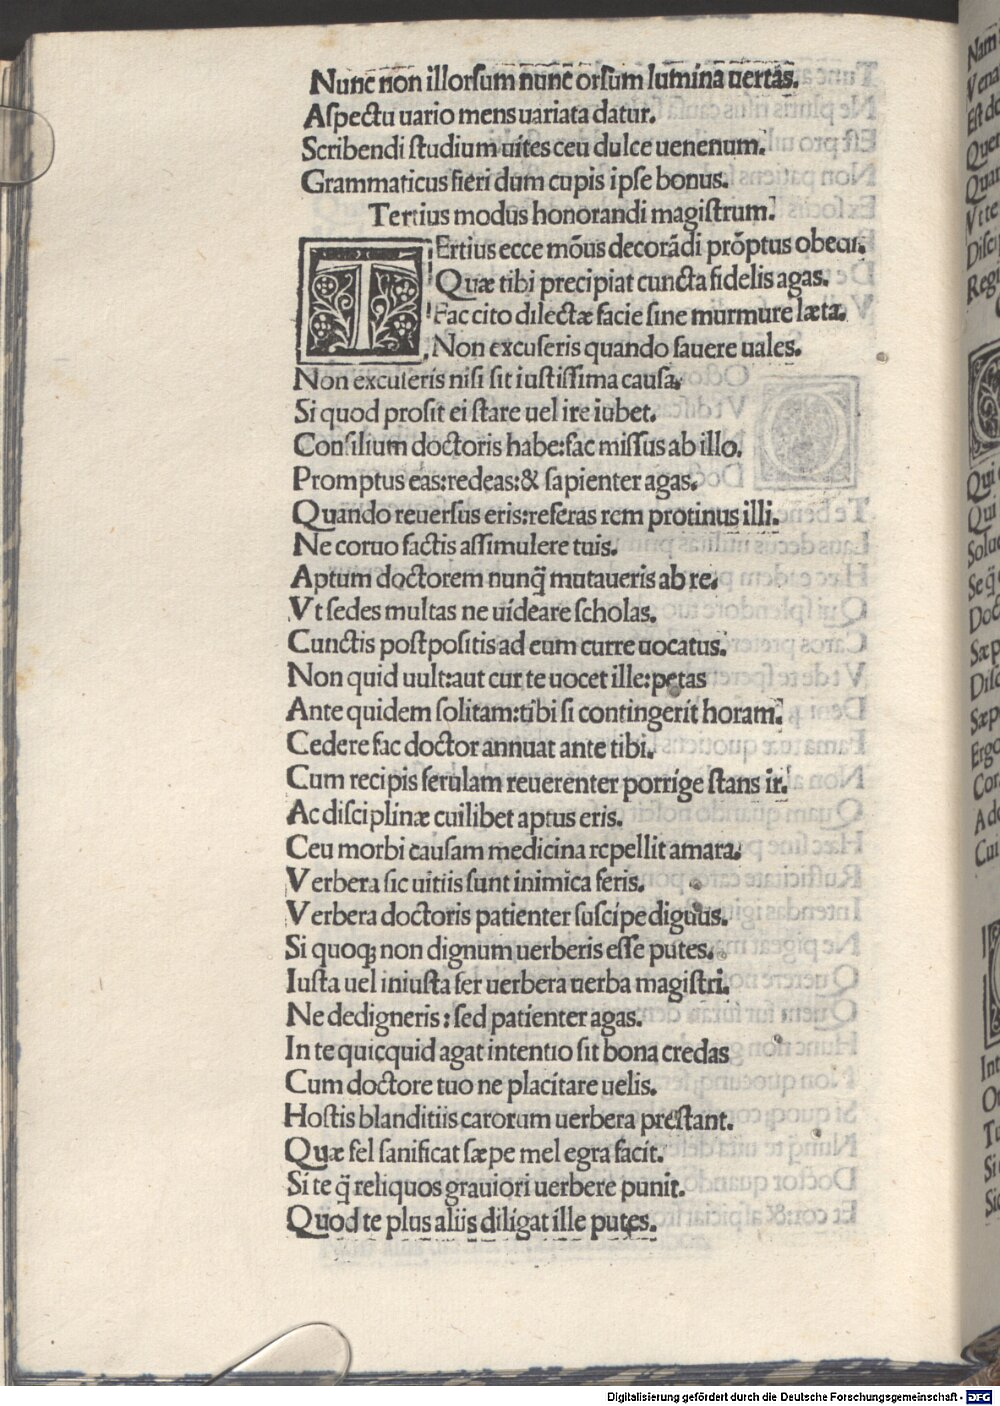 Nunc non illorſum nunc orſum lumina uertas.
Aſpectu uario mens uariata datur.
Scribendi ſtudium uites ceu dulce uenenum.
Grammaticus fieri dum cupis ipſe bonus.
Tertius modus honorandi magiſtrum.
TErtius ecce mõus decorãdi prõptus obedi.
Quæ tibi precipiat cuncta fidelis agas.
Fac cito dilectæ facie ſine murmure læta.
Non excuſeris quando fauere uales.
Non excuſeris niſi ſit iuſtiſſima cauſa.
Si quod proſit ei ſtare uel ire iubet.
Conſilium doctoris habe:fac miſſus ab illo.
Promptus eas:redeas:& ſapienter agas.
Quando reuerſus eris:referas rem protinus illi.
Ne coruo factis aſſimulere tuis.
Aptum doctorem nunq̃ mutaueris ab re.
Vt ſedes multas ne uideare ſcholas.
Cunctis poſtpoſitis ad eum curre uocatus.
Non quid uult:aut cur te uocet ille:petas
Ante quidem ſolitam:tibi ſi contingerit horam.
Cedere fac doctor annuat ante tibi.
Cum recipis ferulam reuerenter porrige ſtans ir.
Ac diſciplinæ cuilibet aptus eris.
Ceu morbi cauſam medicina repellit amara.
Verbera ſic uitiis ſunt inimica feris.
Verbera doctoris patienter ſuſcipe dignus.
Si quoq; non dignum uerberis eſſe putes.
Iuſta uel iniuſta fer uerbera uerba magiſtri.
Ne dedigneris: ſed patienter agas.
In te quicquid agat intentio ſit bona credas
Cum doctore tuo ne placitare uelis.
Hoſtis blanditiis carorum uerbera preſtant.
Quæ fel ſanificat ſæpe mel egra facit.
Si te q̃ reliquos grauiori uerbere punit.
Quod te plus aliis diligat ille putes.
Digitalisierung gefördert durch die Deutsche Forschungsgemeinschaft - DFG